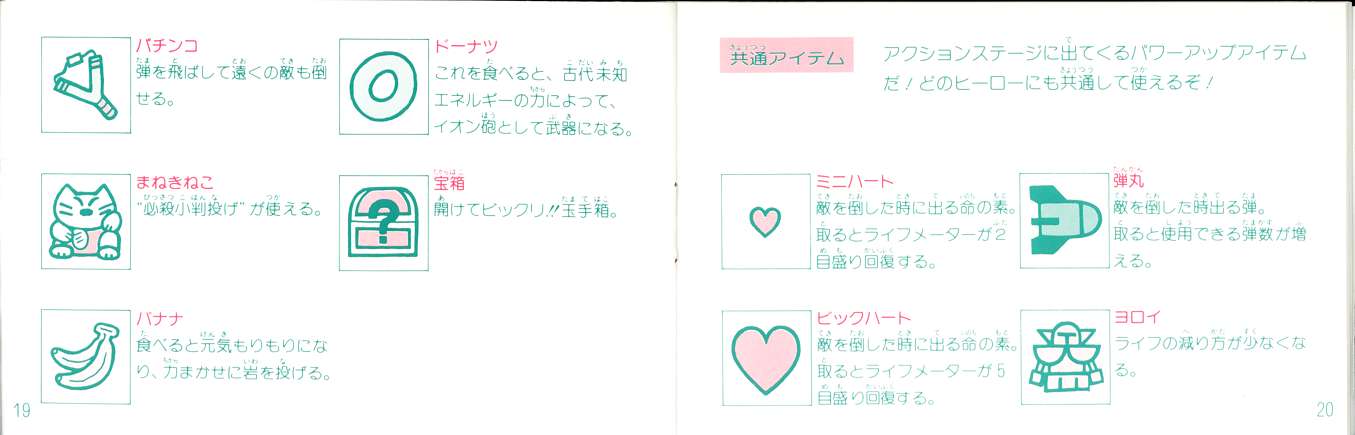 パチンコ
弾を飛ばして遠くの敵も倒
せる。
ドーナツ
これを食べると、古代未知
エネルギーの力によって、
イオン砲として武器になる。
まねきねこ
“必殺小判投げ”が使える。
宝箱
開けてビックリ!!玉手箱。
バナナ
食べると元気もりもりにな
り、力まかせに岩を投げる。
19
共通アイテム
アクションステージに出てくるパワーアップアイテム
だ!どのヒーローにも共通して使えるぞ!
ミニハート
敵を倒した時に出る命の素。
取るとライフメーターが2
目盛り回復する。
弾丸
敵を倒した時出る弾。
取ると使用できる弾数が増
える。
ビックハート
敵を倒した時に出る命の素。
取るとライフメーターが5
目盛り回復する。
ヨロイ
ライフの減り方が少なくな
る。
20